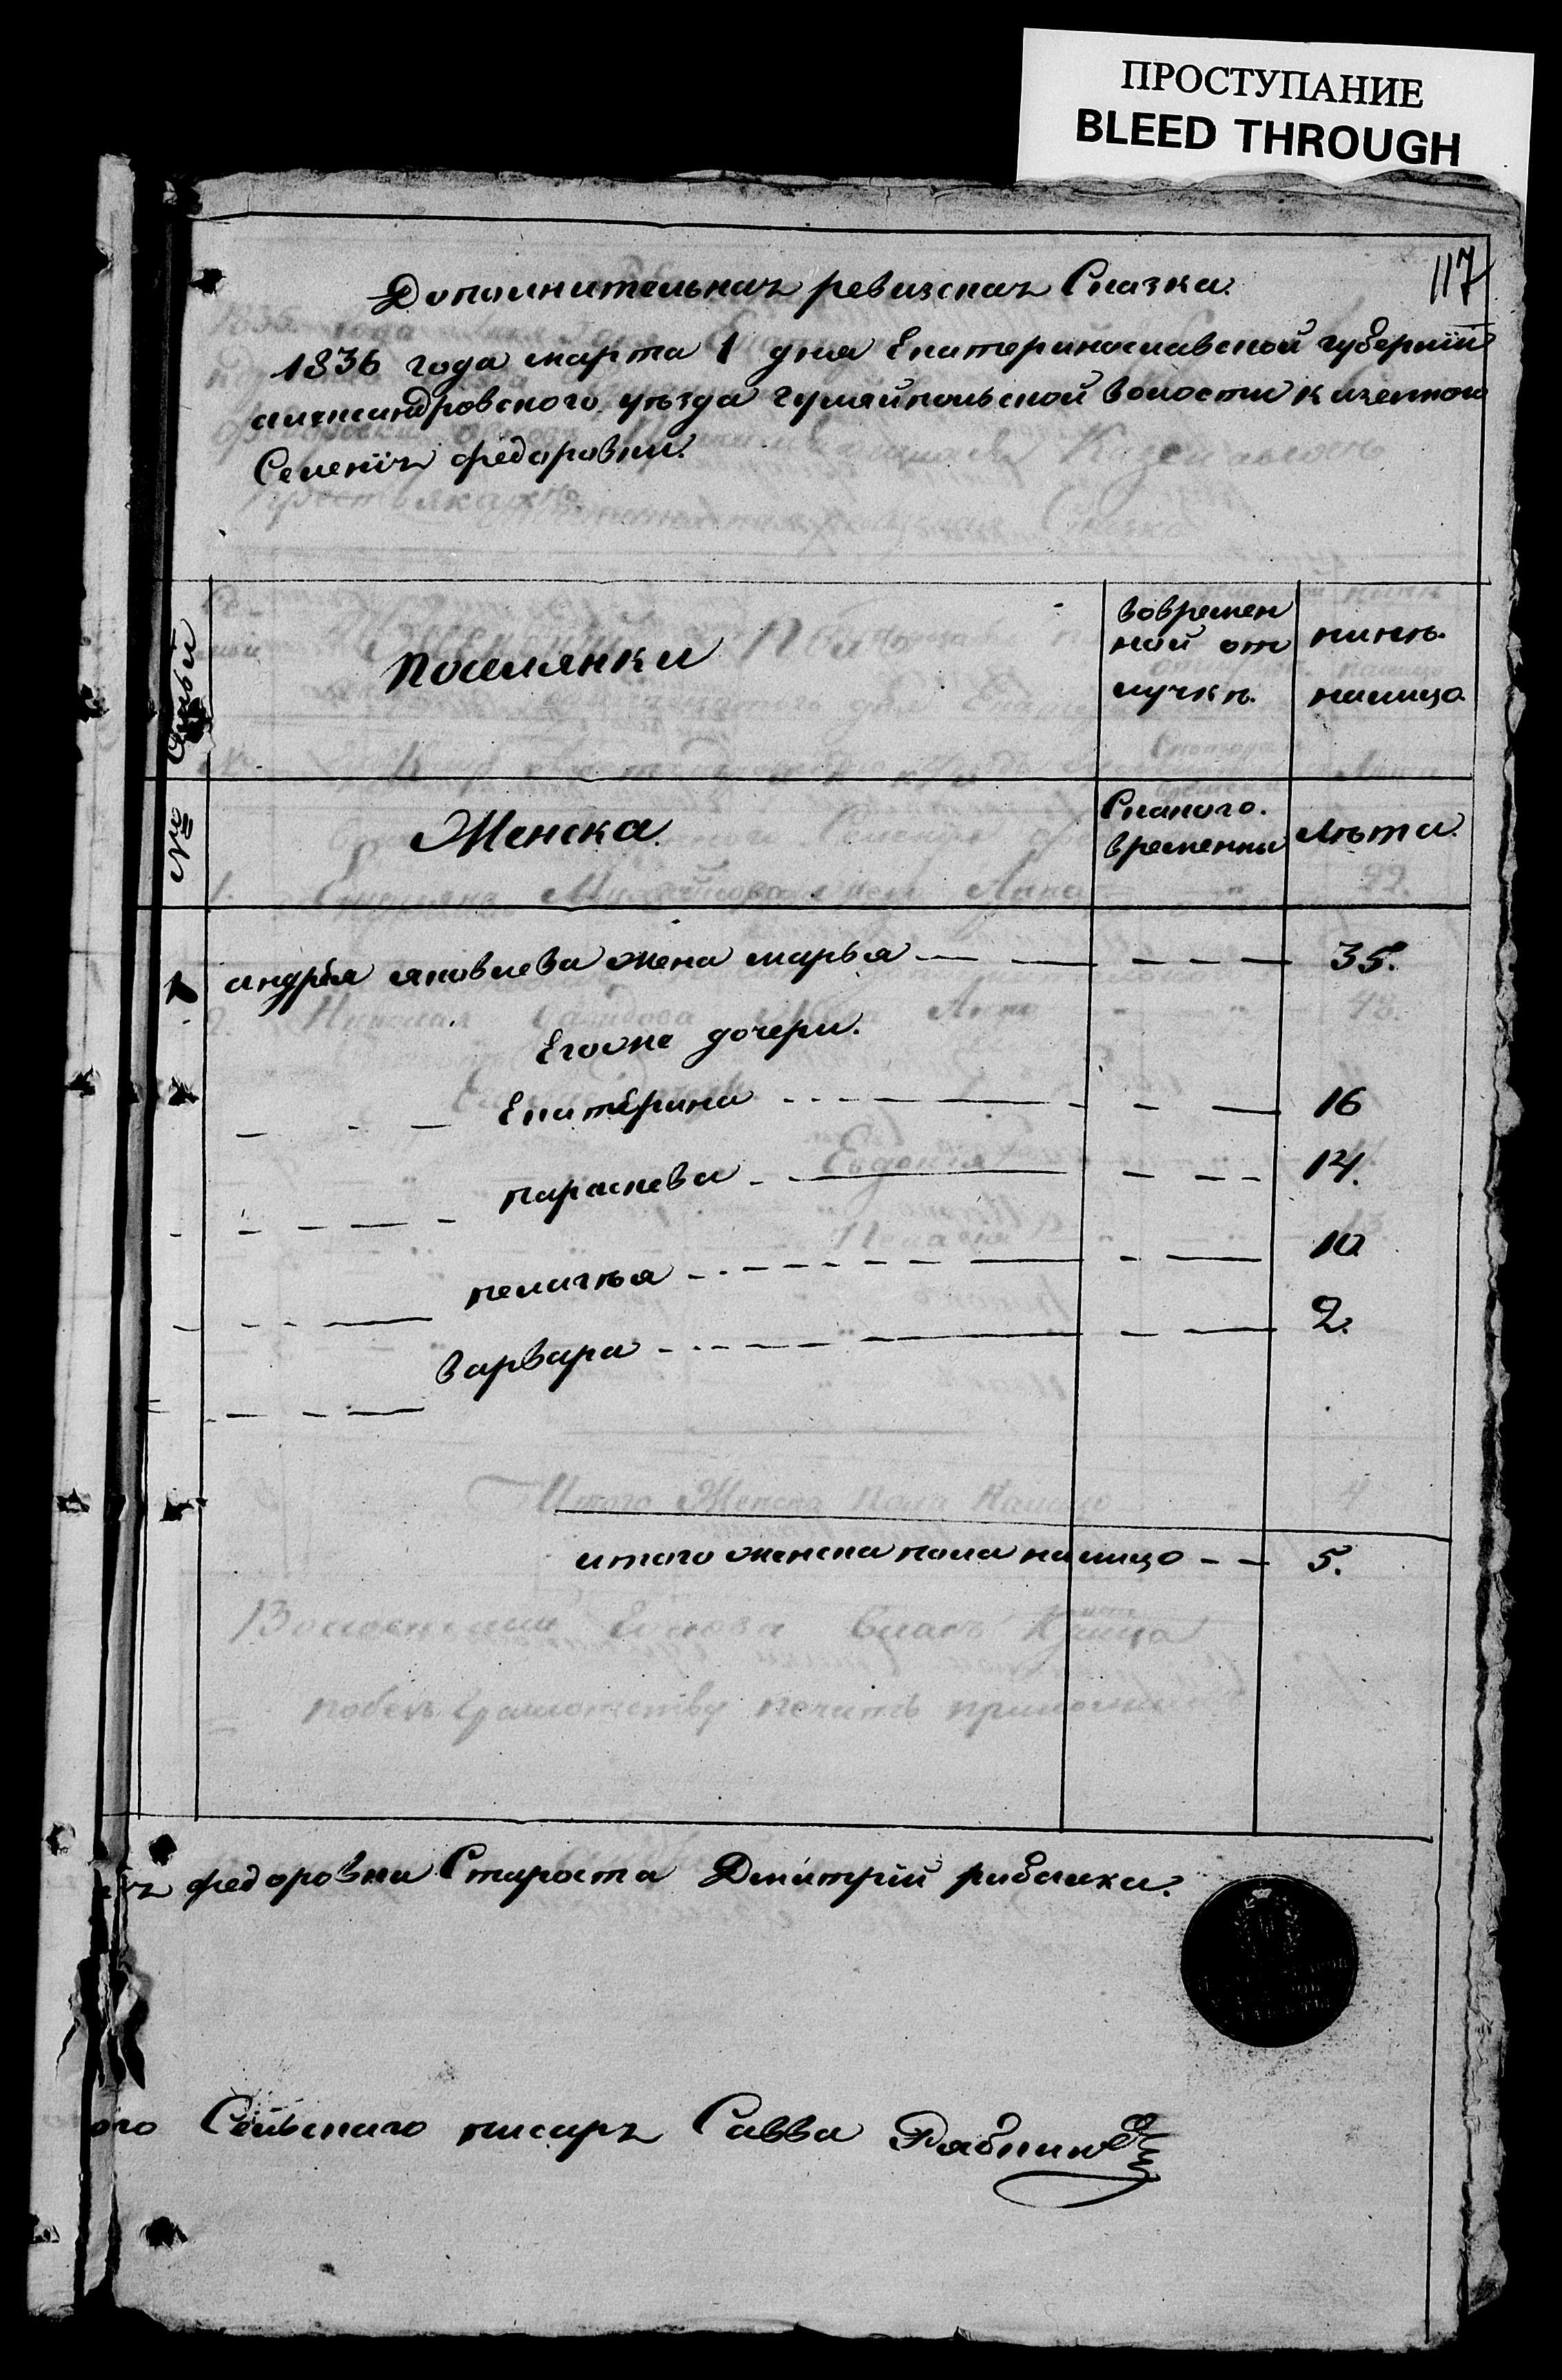 ПРОСТУПАНИЕ
BLEED THROUGH
117
Дополнительная ревизская Сказка.
1836 года марта 1 дня Екатеринославской губернии
александровского уезда гуляйпольской волости казенного
Селения федоровки.
№ Семьи
Поселянки
вовремен
ной от
лучкѣ.
нинѣ.
налицо.
Женска.
Скакого.
временны
Лѣта.
1 андрея яковлева жена марья — — — — — 35.
Егоже дочери.
Екатерина — — — 16
параскева — — — 14.
пелагѣя — — — 10
варвара — — — 2.
итого женска пола налицо — — 5.
федоровки Староста Дмитрій рибалка.
ого Сельскаго писарь Савва Рябкин